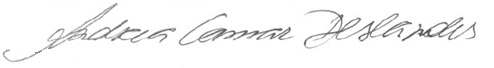 Andrea Camar Deslandes